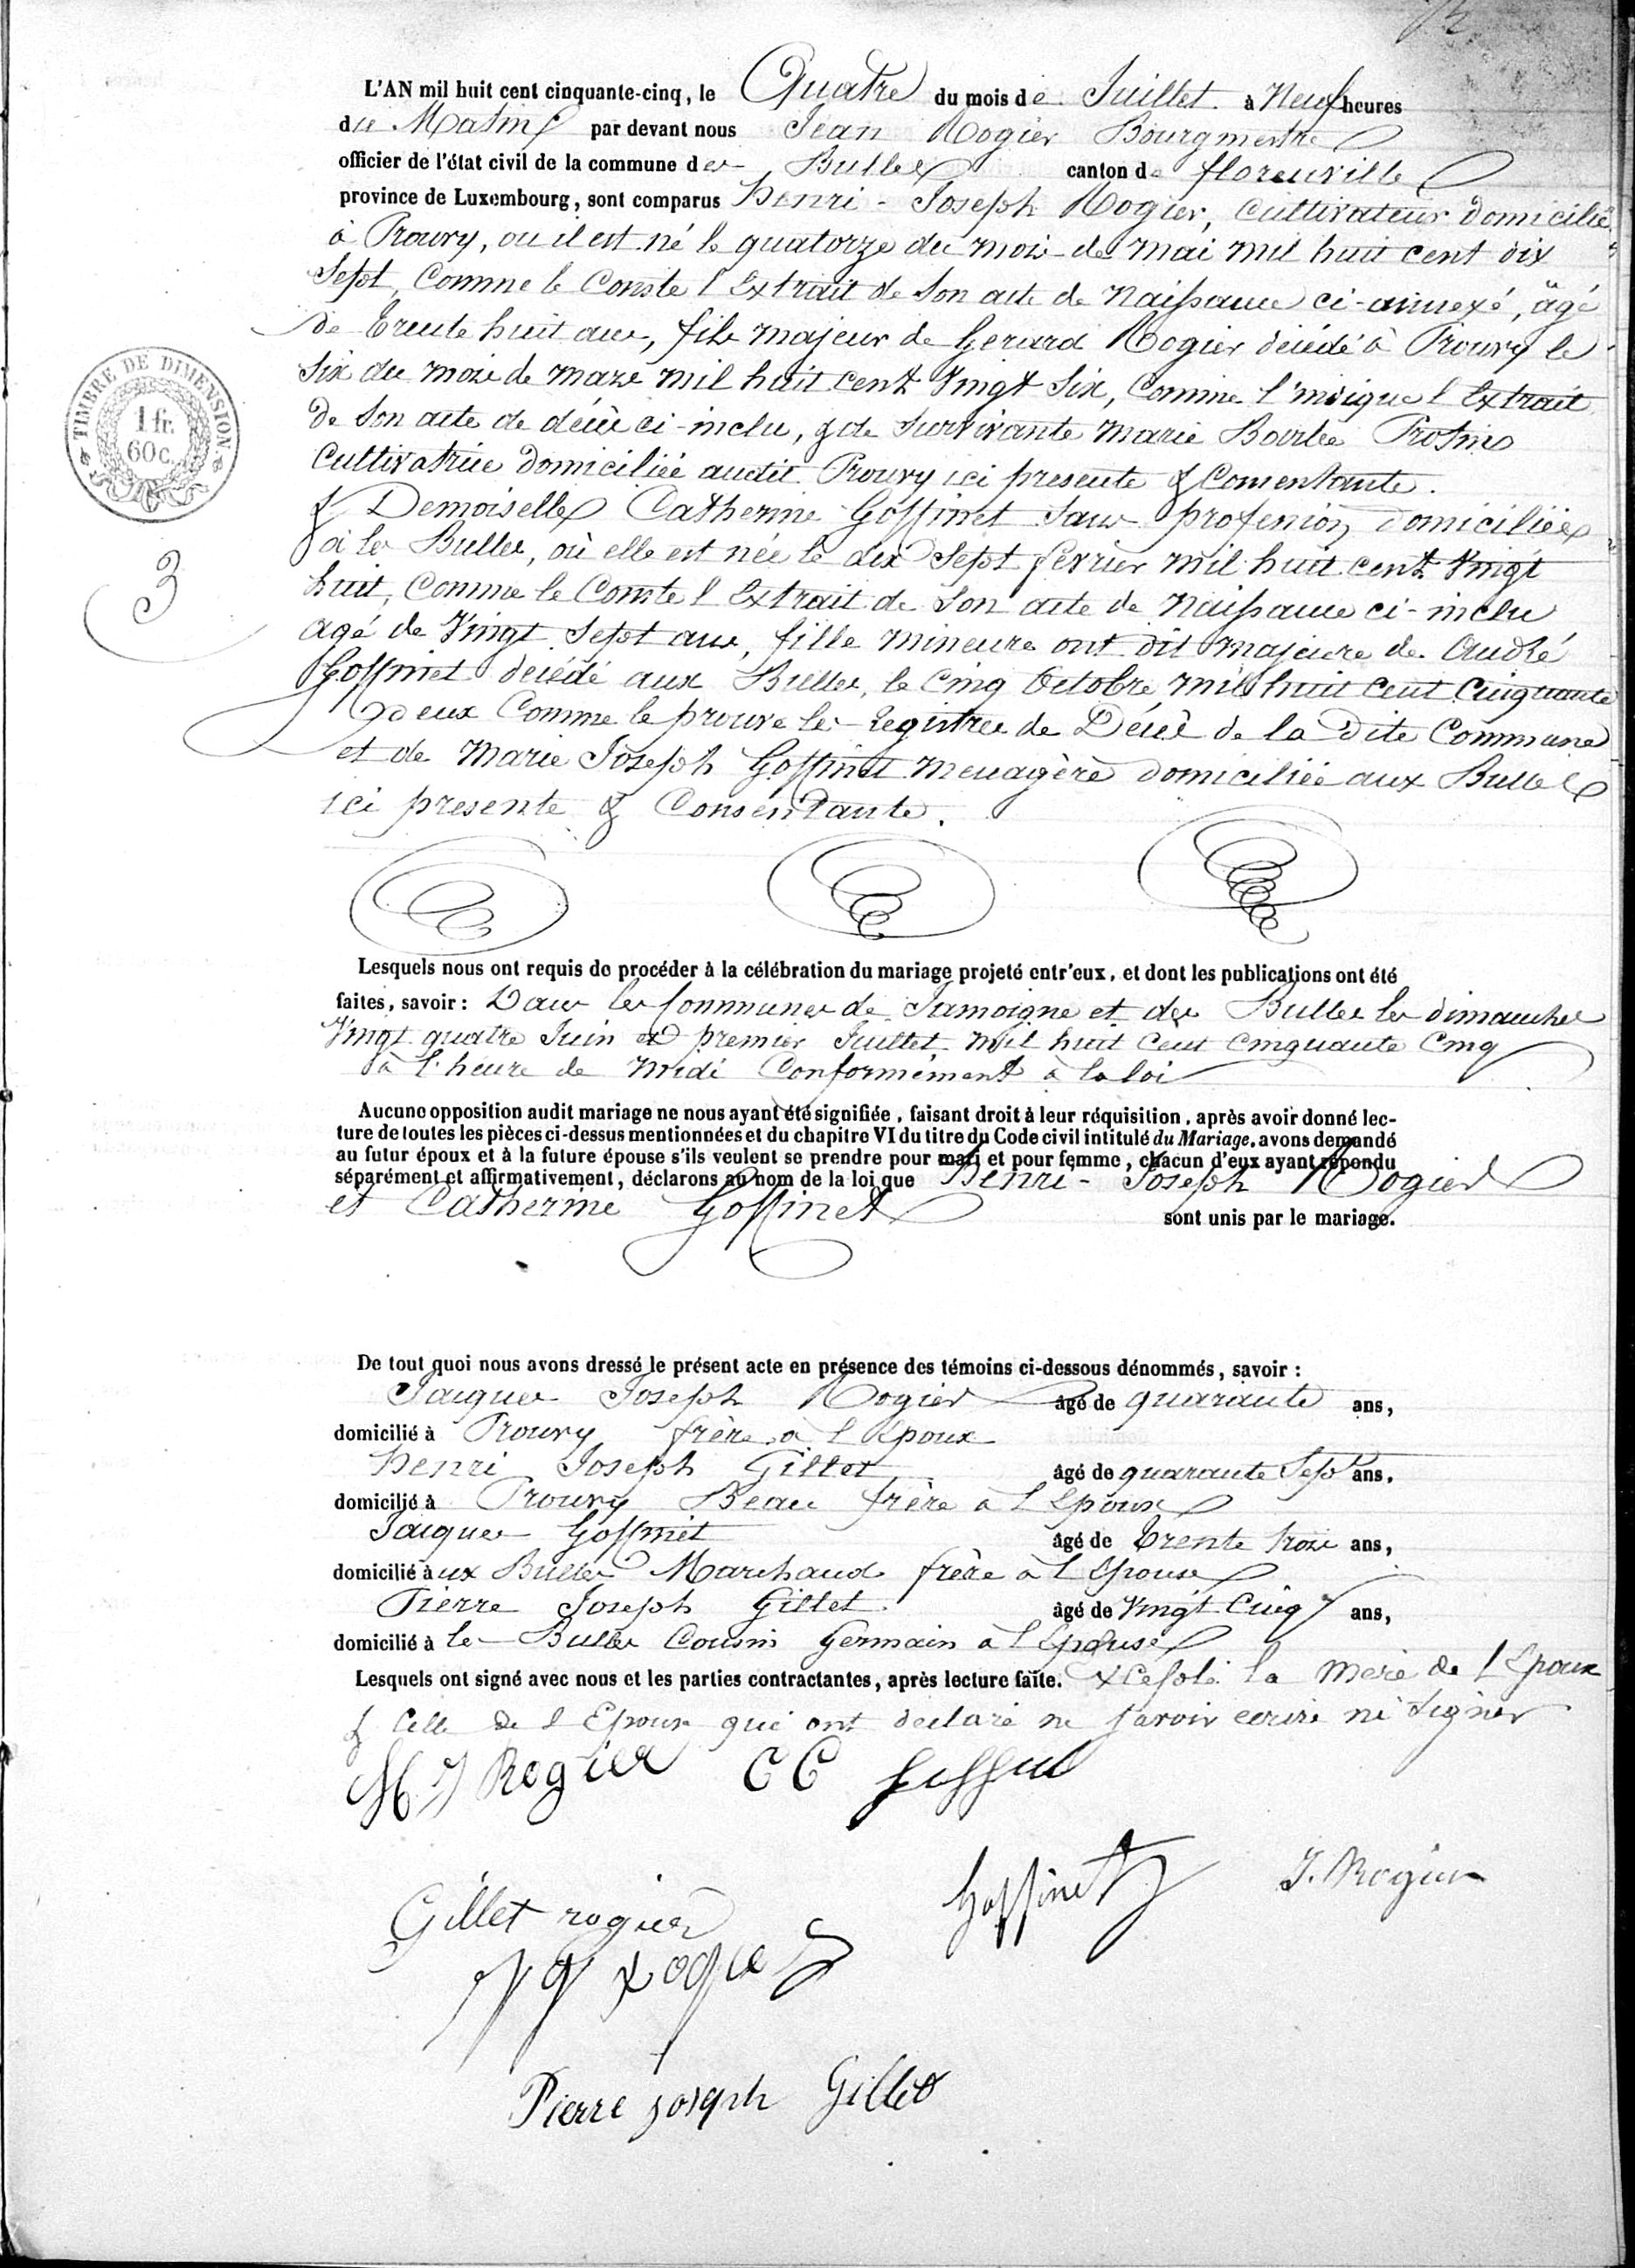 L'AN mil huit cent cinquante-cinq, le Quatre du mois de Juillet à Neuf heures
du Matin par devant nous Jean Rogier Bourgmestre
officier de l'état civil de la commune des Bulles canton de florenville
province de Luxembourg, sont comparus Henri-Joseph Rogier, Cultivateur domicilié
à Prouvy, ou il est né le quatorze du mois de mai mil huit cent dix
Sept, Comme le Conste l Extrait de Son acte de Naissance ci-annexé, âgé
de trente huit ans, fils majeur de Gerard Rogier décédé à Prouvy le
Six du mois de mars mil huit cent Vingt Six, Comme l'indique l Extrait
de Son acte de décès ci-inclu, & de Survivante Marie Barbe
Cultivatrice domiciliée audit Prouvy ici presente & Consentante.
& Demoiselle Catherine Goffinet Sans profession domiciliée
à les Bulles, où elle est née le dix Sept fevrier mil huit cent Vingt
huit, Comme le Conste l Extrait de Son acte de Naissance ci-inclu
agé de Vingt Sept ans, fille mineure ont dit majeure de André
Goffinet décédé aux Bulles, le Cinq Octobre mil huit cent Cinquante
deux Comme le prouve les registres de Décès de la dite Commune
et de Marie Joseph Goffinet menagère domiciliée aux Bulles
ici presente & Consentante.
Lesquels nous ont requis de procéder à la célébration du mariage projeté entr'eux, et dont les publications ont été
faites, savoir: Dans les Communes de Jamoigne et des Bulles les dimanches
Vingt quatre Juin et premier Juillet mil huit Cent Cinquante Cinq
à l'heure de midi Conformément à la loi
Aucune opposition audit mariage ne nous ayant été signifiée, faisant droit à leur réquisition, après avoir donné lec-
ture de toutes les pièces ci-dessus mentionnées et du chapitre VI du titre du Code civil intitulé du Mariage, avons demandé
au futur époux et à la future épouse s'ils veulent se prendre pour mari et pour femme, chacun d'eux ayant répondu
séparément et affirmativement, déclarons au nom de la loi que Henri-Joseph Rogier
et Catherine Goffinet sont unis par le mariage.
De tout quoi nous avons dressé le présent acte en présence des témoins ci-dessous dénommés, savoir :
Jacques Joseph Rogier âgé de quarante ans,
domicilié à Prouvy frère à l Epoux
Henri Joseph Gillet âgé de quarante Sept ans.
domicilié à Prouvy Beau frère à l Epoux
Jacques Goffinet âgé de trente trois ans,
domicilié aux Bulles Marchand frère à l Epouse
Pierre Joseph Gillet âgé de Vingt Cinq ans,
domicilié à les Bulles Cousin Germain à l Epouse
Lesquels ont signé avec nous et les parties contractantes, après lecture faite. Excepté la Mère de l Epoux
& Celle de l Epouse qui ont déclaré ne savoir ecrire ni Signer
H J Rogier C Goffinet
Gillet rogier Goffinet J. Rogier
J J Rogier
Pierre joseph Gillet
TIMBRE DE DIMENSION.
1 fr.
60 c.
3